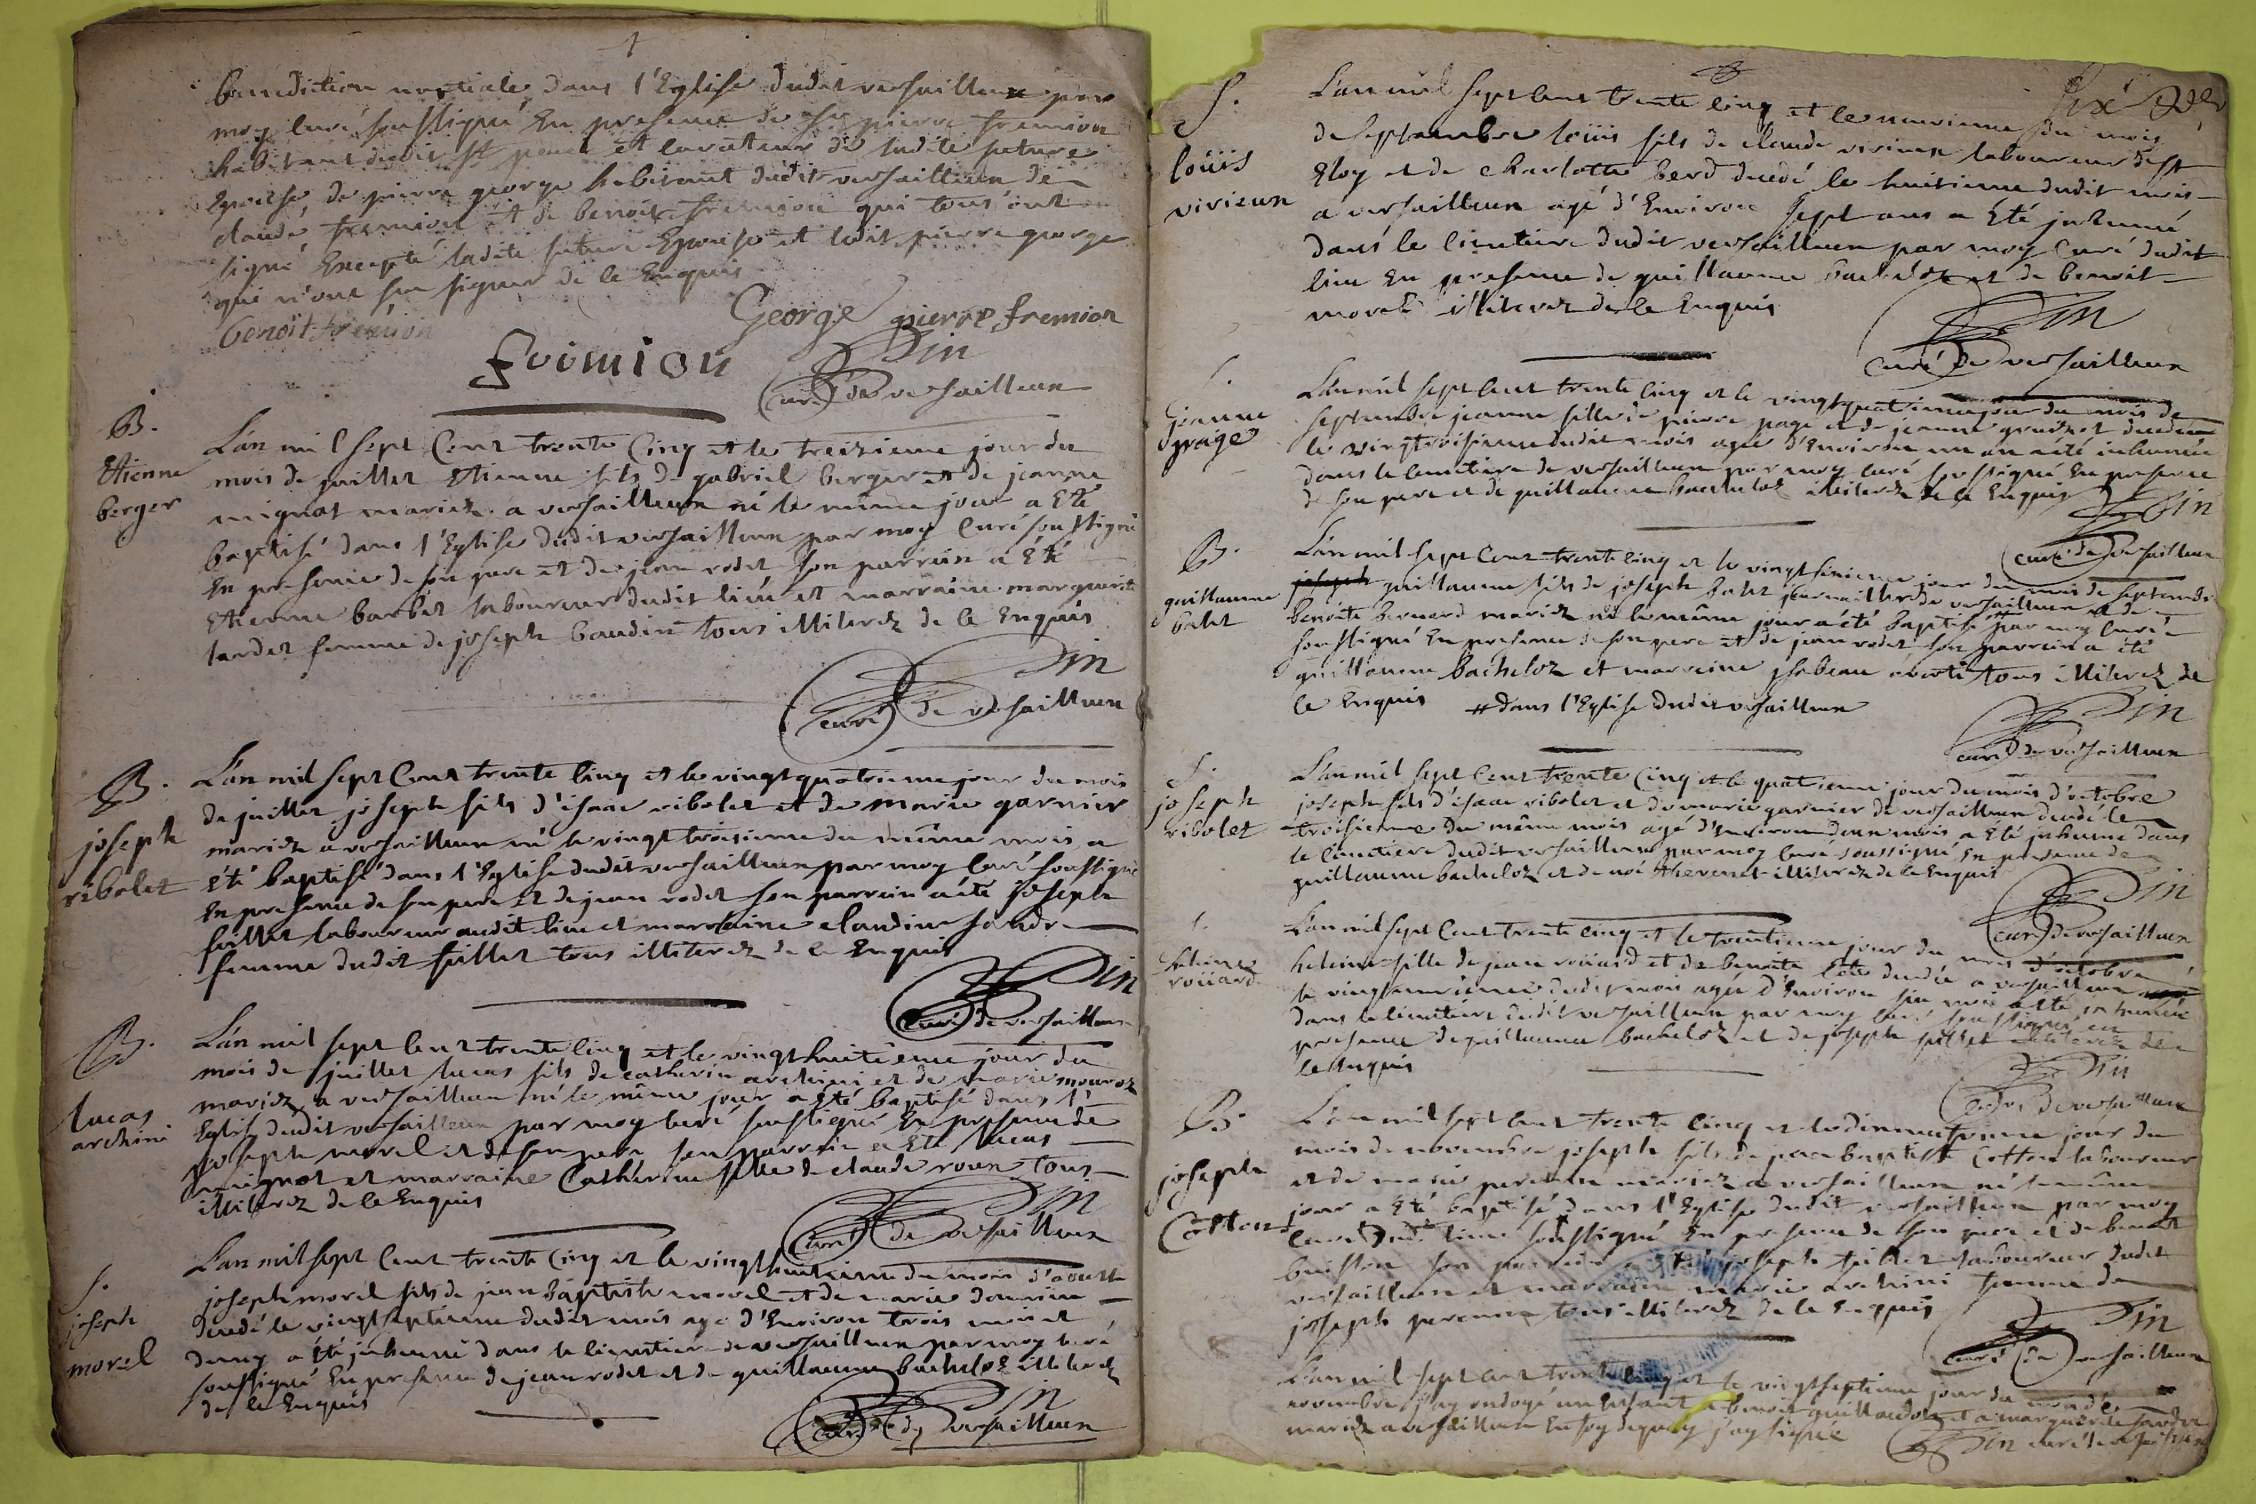 benediction nuptiale dans l'Eglise dudit versailleux par
moy curé soussigné En presence de pierre fremion
habitant dudit st paul et curateur de ladite future
Epouse de pierre george habitant dudit versailleux de
claude fremion et de benoit fremion qui tous ont
signé Excepté ladite future Epouse et ledit pierre george
qui n'ont sçu signer de ce Enquis
benoit fremion George pierre fremion
frimion
Din
curé de versailleux
B.
Etienne
berger
L'an mil sept Cent trente Cinq et le treizieme jour du
mois de juillet Etienne fils de gabriel berger et de jeanne
mignot mariez a versailleux né le même jour a Eté
baptisé dans l'Eglise dudit versailleux par moy Curé soussigné
En presence de son pere et de jean rodet son parrain a Eté
Etienne barbet laboureur dudit lieu et marraine marguerite
tardet femme de joseph baudin tous illiterez de ce Enquis
Din
curé de versailleux
B.
joseph
ribolet
L'an mil sept Cent trente Cinq et le vingt quatrieme jour du mois
de juillet joseph fils d'isaac ribolet et de marie garnier
mariez a versailleux né le vingt troisieme du même mois a
Eté baptisé dans l'Eglise dudit versailleux par moy Curé soussigné
En presence de son pere Et de jean rodet son parrain a été Joseph
fillet laboureur audit lieu et marraine claudine
femme dudit fillet tous illiterez de ce Enquis
Din
curé de versailleux
B.
lucas
archini
L'an mil sept Cent trente Cinq et le vingt huitieme jour du
mois de juillet lucas fils de catherin archini et de marie mouroz
mariez a versailleux né le même jour a Eté baptisé dans l'
Eglise dudit versailleux par moy curé soussigné En presence de
joseph morel et de son pere son parrain a Eté lucas
mignot et marraine Catherine fille de claude roux tous
illiterez de ce Enquis
Din
curé de versailleux
S.
joseph
morel
L'an mil sept Cent trente Cinq et le vingt huitieme du mois d'aoust
joseph morel fils de jean baptiste morel et de marie
decedé le vingt septieme dudit mois agé d'Environ trois mois et
demy a Eté inhumé dans le cimetiere de versailleux par moy curé
soussigné En presence de jean rodet et de guillaume bacheloz illiterez
de ce Enquis
Din
curé de versailleux
S.
loüis
virieux
L'an mil sept Cent trente Cinq et le neuvieme du mois
de septembre loüis fils de claude virieux laboureur de st
Eloy et de charlotte berd decedé le huitieme dudit mois
a versailleux agé d'Environ sept ans a Eté inhumé
dans le cimetiere dudit versailleux par moy Curé dudit
lieu En presence de guillaume bacheloz et de benoit
morel illiterez de ce Enquis
Din
curé de versailleux
S.
jeanne
page
L'an mil sept Cent trente Cinq et le vingt quatrieme jour du mois de
septembre jeanne fille de pierre page et de jeanne decedée
le vingt troisieme dudit mois agée d'Environ un an a été inhumée
dans le cimetiere de versailleux par moy curé soussigné En presence
de son pere et de guillaume bacheloz illiterez de ce Enquis
Din
curé de versailleux
B.
guillaume
balet
L'an mil sept Cent trente Cinq et le vingt sixieme jour du mois de septembre
joseph guillaume fils de joseph balet journaillier de versailleux et de
benoite bernard mariez né le même jour a été baptisé # par moy Curé
soussigné En presence de son pere et de jean rodet son parrain a été
guillaume bacheloz et marraine ysabeau tous illiterez de
ce Enquis # dans l'Eglise dudit versailleux
Din
curé de versailleux
S.
joseph
ribolet
L'an mil sept Cent trente Cinq et le quatrieme jour du mois d'octobre
joseph fils d'isaac ribolet et de marie garnier de versailleux decedé le
troisieme du même mois agé d'Environ deux mois a Eté inhumé dans
le cimetiere dudit versailleux par moy curé soussigné En presence de
guillaume bacheloz et de noé thevenet illiterez de ce Enquis
Din
curé de versailleux
S.
helaine
roüard
L'an mil sept Cent trente cinq et le trentieme jour du mois d'octobre
helaine fille de jean roüard et de benoite decedée a versailleux
le vingt neuvieme dudit mois agée d'Environ six mois a été inhumée
dans le cimetiere dudit versailleux par moy curé soussigné en
presence de guillaume bacheloz et de joseph fillet illiterez de
ce Enquis
Din
curé de versailleux
B.
joseph
Cotton
L'an mil sept Cent trente Cinq et le dix neuvieme jour du
mois de novembre joseph fils de jean baptiste Cotton laboureur
et de marie mariez a versailleux né le même
jour a Eté baptisé dans l'Eglise dudit versailleux par moy
Curé dudit lieu soussigné En presence de son pere et de benoit
buisson son parrain a Eté joseph fillet laboureur dudit
versailleux et marraine marie archini femme de
joseph tous illiterez de ce Enquis
Din
curé de versailleux
L'an mil sept cent trente Cinq et le vingt septieme jour du mois de
novembre j'ay ondoyé un Enfant a benoit guillaudoz et a marguerite
mariez a versailleux En foy de quoy j'ay signé
Din curé de versailleux